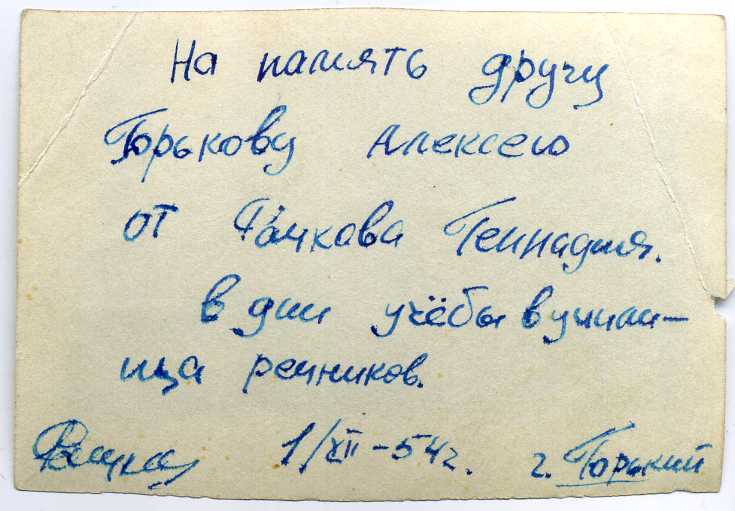 На память другу
Горькову Алексею
от Рачкова Геннадия.
в дни учёбы в учили–
ща речников.
1/XII–54 г. г. Горький